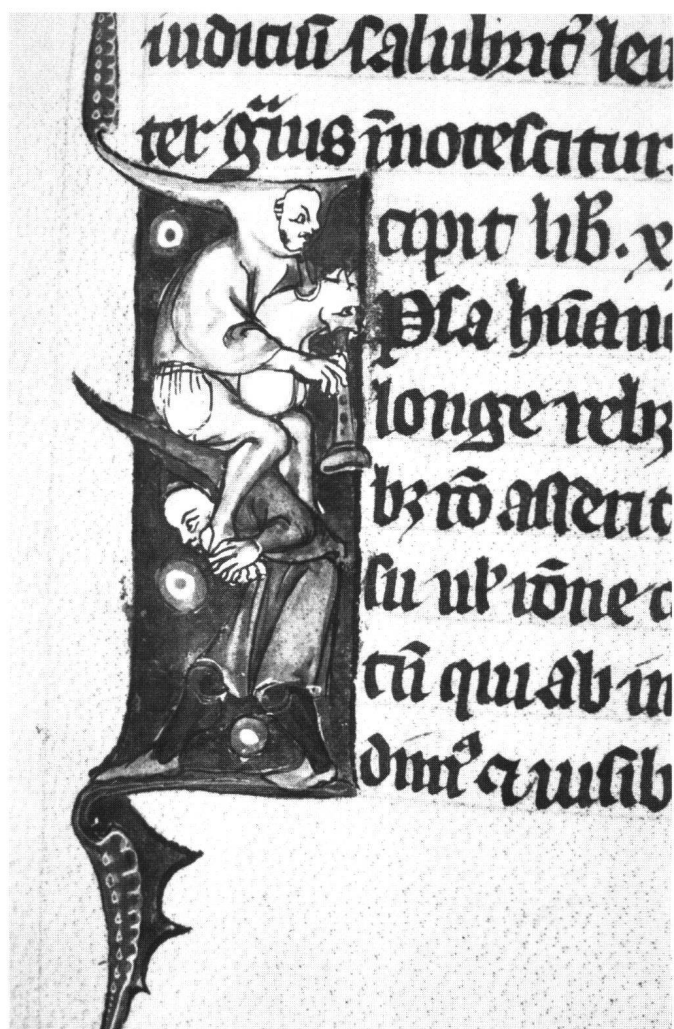 iudiciū salubrit̉ leu
ter gͣius īnotescitur.
cipit lib̄. x
Psa hūan
longe reb
rō asserit
su ul̉ rōne c
tū qui ab in
⁊ uisib